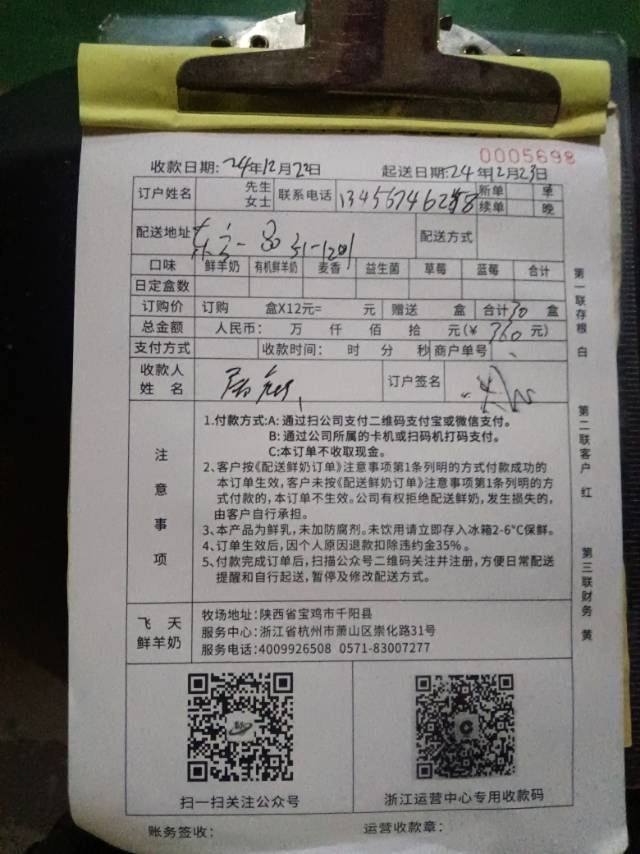 0005698
收款日期:24年12月22日 起送日期:24年12月23日
订户姓名 先生 女士 联系电话 新单 单
续单 晚
配送地址 配送方式
口味 鲜羊奶 有机鲜羊奶 麦香 益生菌 草莓 蓝莓 合计
日定盒数
订购价 订购 盒X12元= 元 赠送 盒 合计30盒
总金额 人民币: 万 仟 佰 拾 元(¥ 360元)
支付方式 收款时间: 时 分 秒 商户单号
收款人
姓 名 订户签名
注意事项
1.付款方式:A:通过扫公司支付二维码支付宝或微信支付。
B:通过公司所属的卡机或扫码机打码支付。
C:本订单不收取现金。
2、客户按《配送鲜奶订单》注意事项第1条列明的方式付款成功的
本订单生效,客户未按《配送鲜奶订单》注意事项第1条列明的方
式付款的,本订单不生效。公司有权拒绝配送鲜奶,发生损失的,
由客户自行承担。
3、本产品为鲜乳,未加防腐剂。未饮用请立即存入冰箱2-6°C保鲜。
4、订单生效后,因个人原因退款扣除违约金35%。
5、付款完成订单后,扫描公众号二维码关注并注册,方便日常配送
提醒和自行起送,暂停及修改配送方式。
飞天
鲜羊奶
牧场地址:陕西省宝鸡市千阳县
服务中心:浙江省杭州市萧山区崇化路31号
服务电话:4009926508 0571-83007277
扫一扫关注公众号 浙江运营中心专用收款码
账务签收: 运营收款章:
第一联存根 白
第二联客户 红
第三联财务 黄